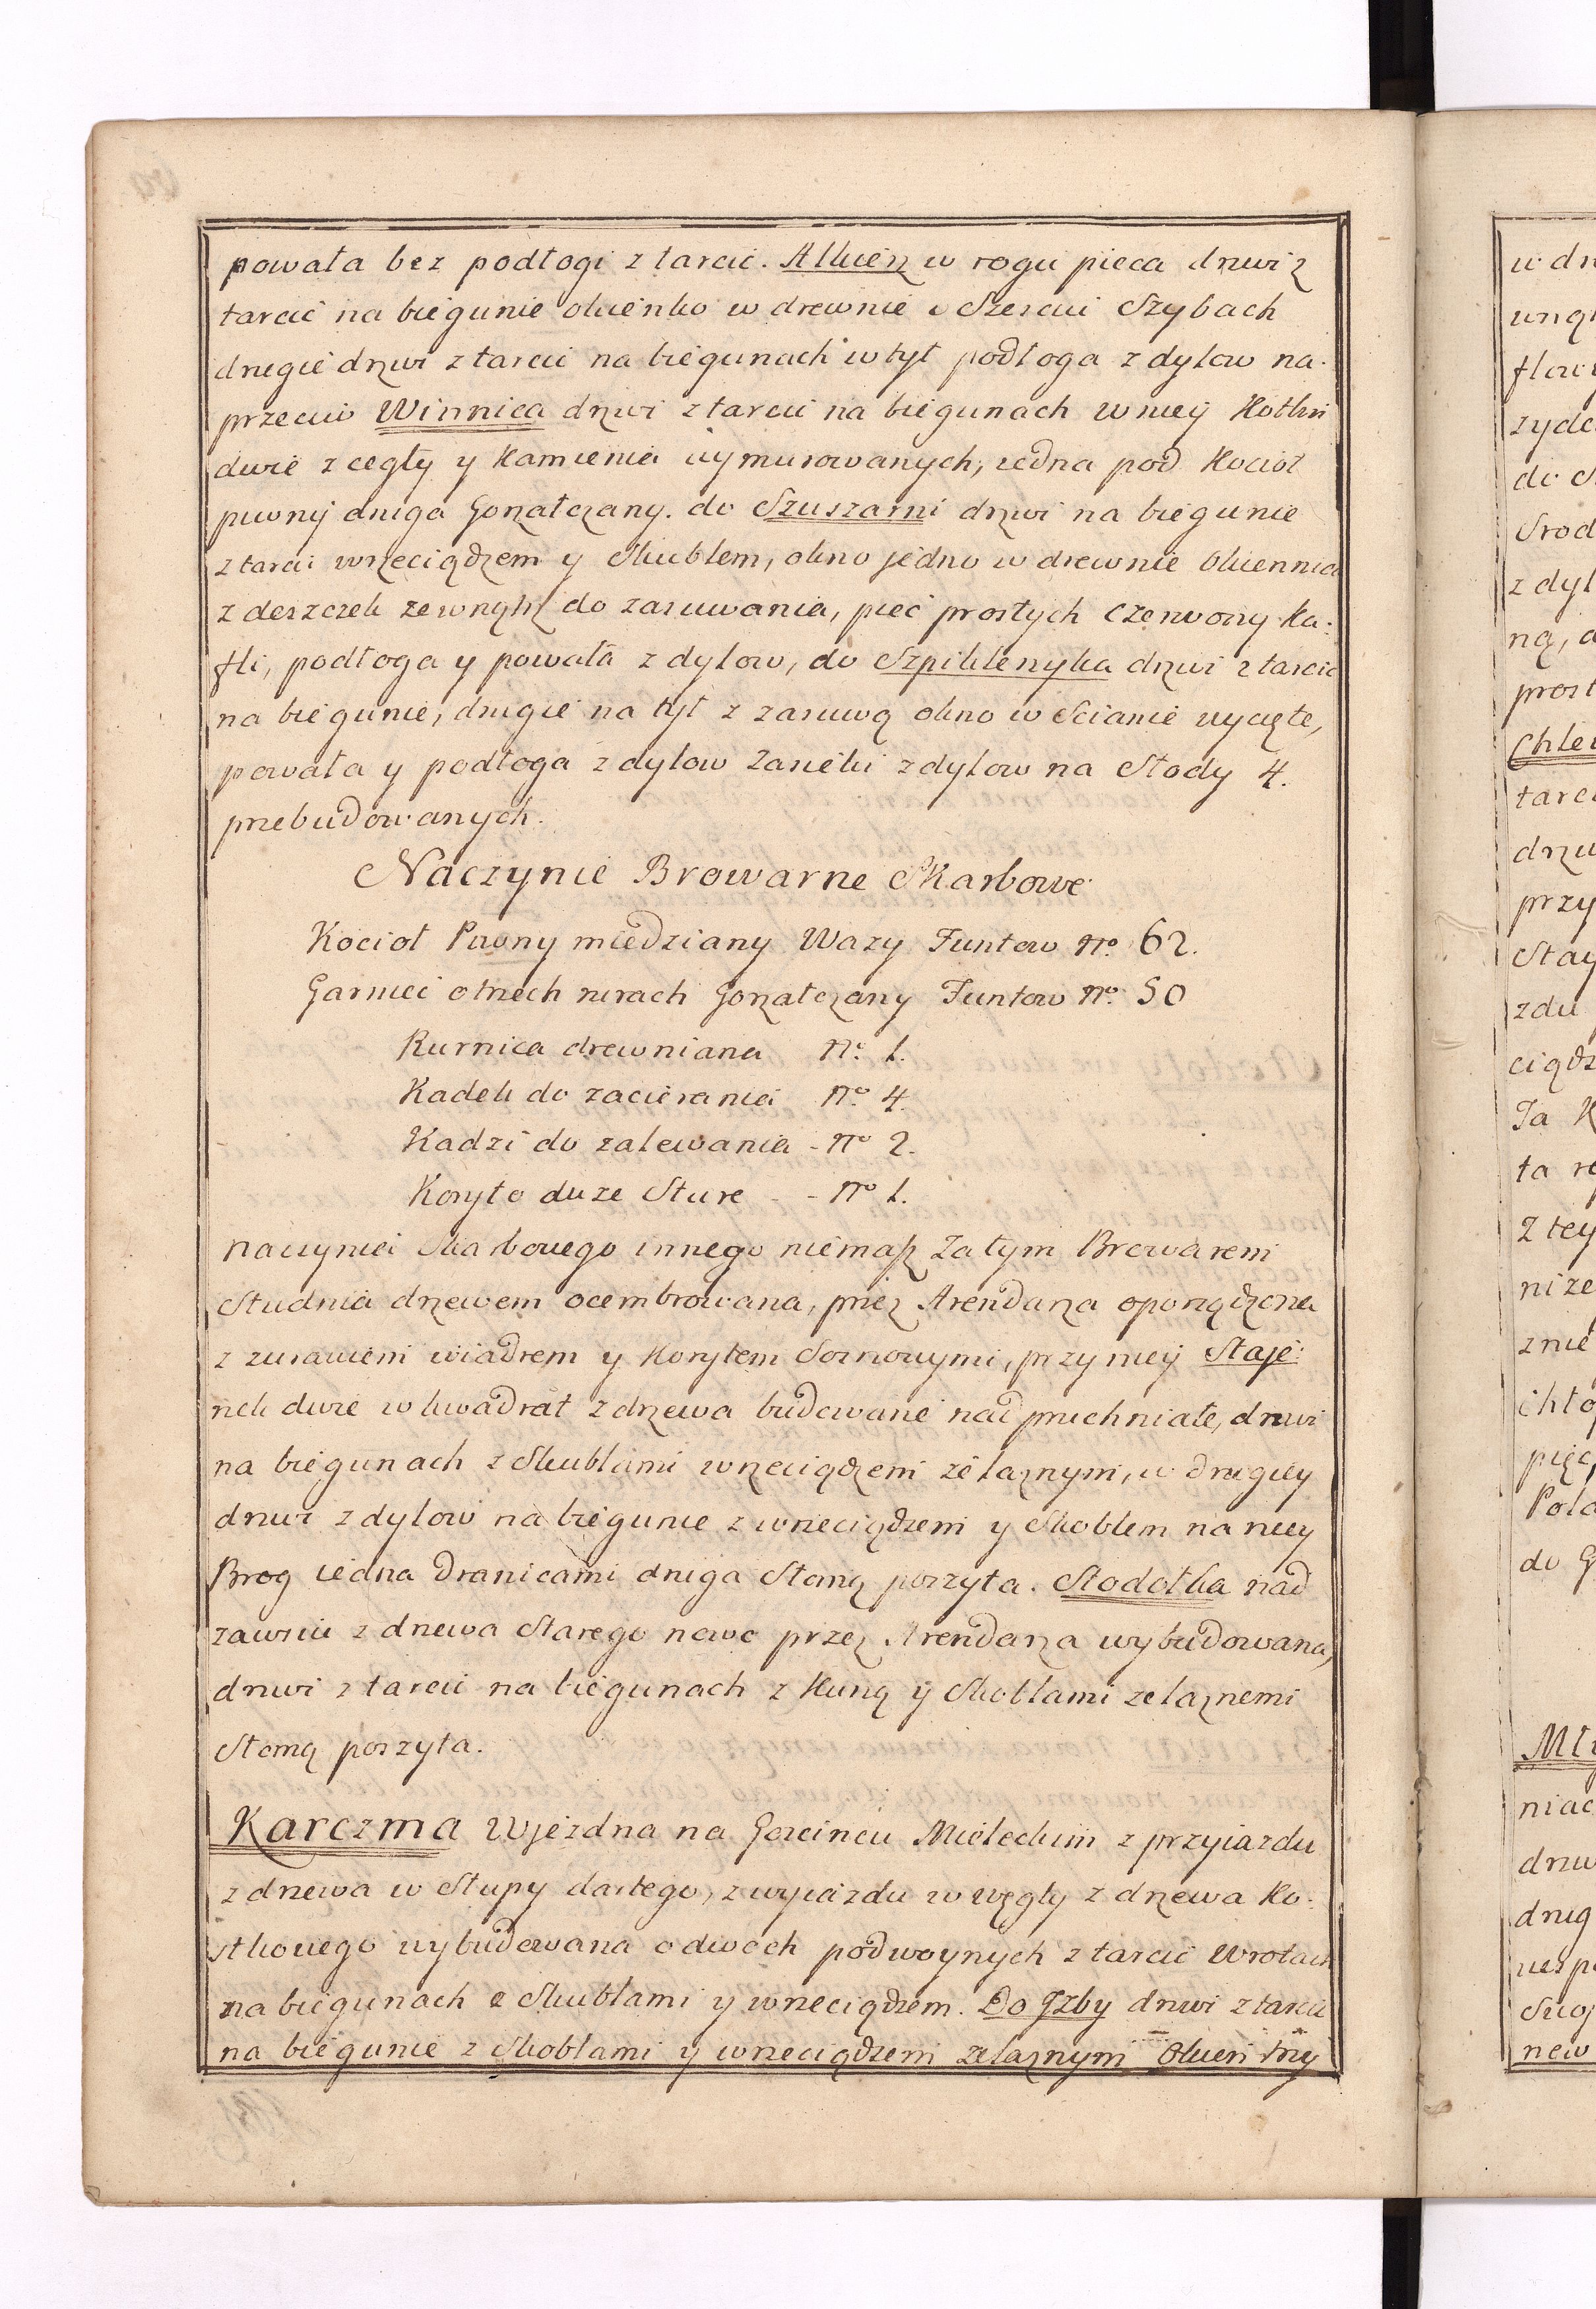 powała bez podłogi z tarcic. Alkierz w rogu pieca drzwi z
tarcic na biegunie okienko w drewnie o Szesciu Szybach
drugie drzwi z tarcic na biegunach w tył podłoga z dylow na-
przeciw Winnica drzwi z tarcic na biegunach w niey Kotlin
dwie z cegły y Kamienia wymurowanych, iedna pod Kocioł
piwny druga Gorzałczany. do Szuszarni drzwi na biegunie
z tarcic wrzeciądzem y Skublem, okno jedno w drewnie Okiennica
z deszczek zewnątrz do zasuwania, piec prostych Czerwony Ka-
fli, podłoga y powała z dylow, do Szpiklerzyka drzwi z tarcic
na biegunie, drugie na tył z zasuwą okno w Scianie wycięte,
powała y podłoga z dylow Zasieki z dylow na Słody 4.
przebudowanych.
Naczynie Browarne Skarbowe
Kocioł Piwny miedziany Wazy Funtow No. 62.
Garniec o trzech rurach Gorzałczany Funtow No. 50
Rurnica drewniana No. 1.
Kadek do zacierania No. 4.
Kadzi do zalewania - No 2.
Koryto duze Stare - - No 1.
Naczynia Skarbowego innego niemasz Za tym Browarem
Studnia drzewem ocembrowana, przez Arendarza oporządzona
z zurawiem wiadrem y Korytem Sosnowymi, przy niey Staje-
nek dwie w kwadrat z drzewa budowane nad pruchniałe, drzwi
na biegunach z Skublami wrzeciądzem żelaznym, u drugiey
drzwi z dylow na biegunie z wrzeciądzem y Skoblem na niey
Brog iedna Dranicami druga Słomą poszyta. Stodołka nad
zawrcie z drzewa Starego nowo przez Arendarza wybudowana,
drzwi z tarcic na biegunach z Kuną y Skoblami zelaznemi
Słomą poszyta.
Karczma Wjezdna na Goscincu Mieleckim z przyiazdu
z drzewa w Słupy dartego, z wyiazdu w węgły z drzewa Ko-
stkowego wybudowana o dwoch podwoynych z tarcic Wrotach
na biegunach z Skubłami y wrzeciądzem. Do Jzby drzwi z tarcic
na biegunie z Skobłami y wrzeciądzem zelaznym Okien trzy